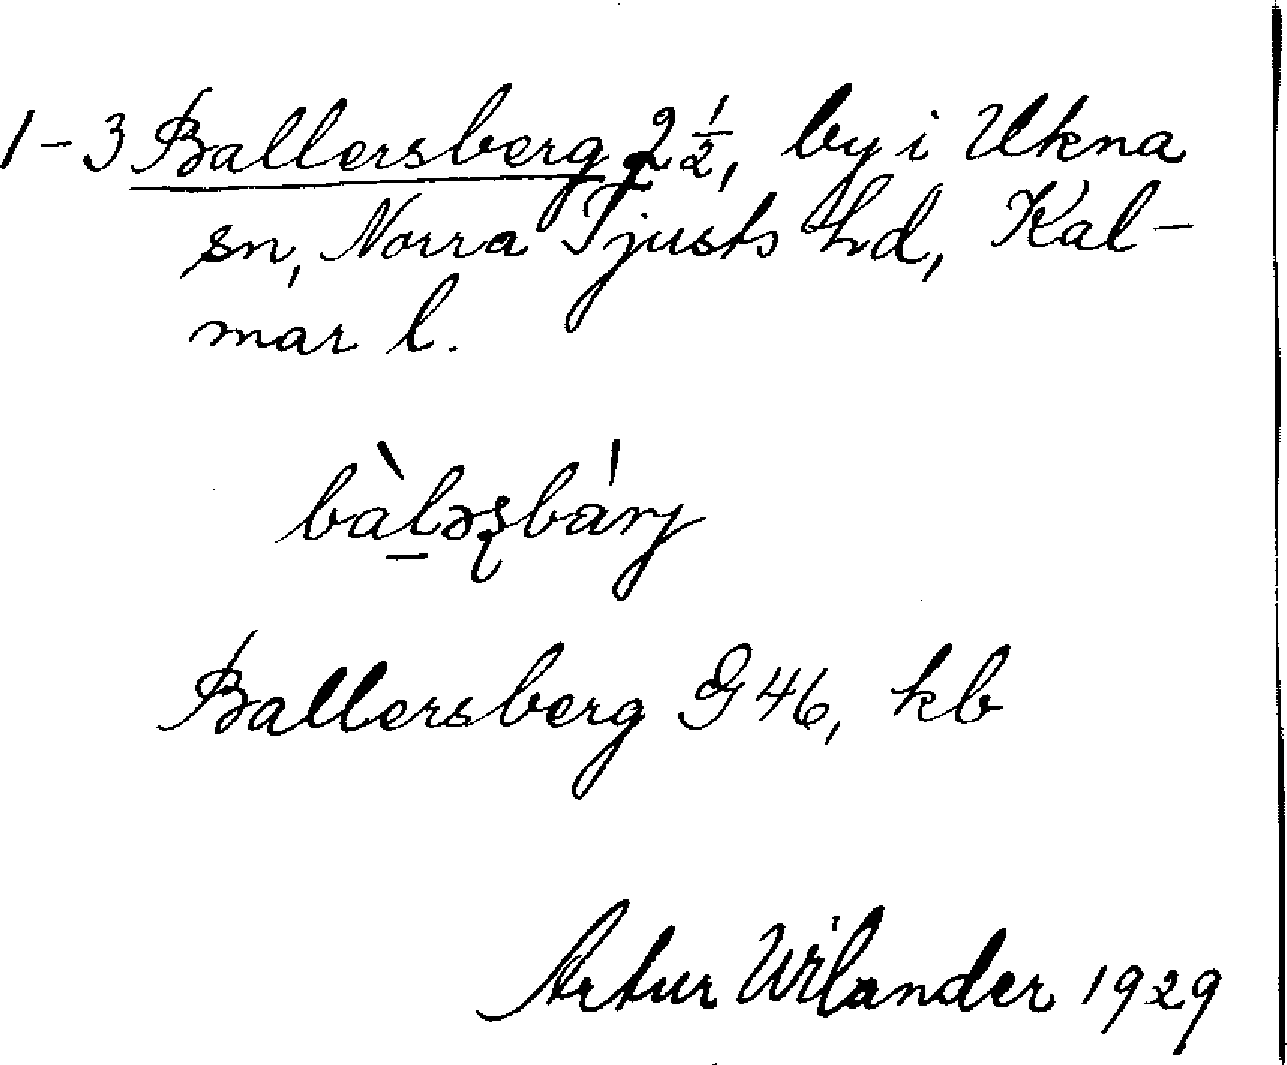 1-3 Ballersberg 2½, by i Ukna
sn, Norra Tjusts hd, Kal-
mar l.
bàl̲əʂbárj
Ballersberg G 46, kb
Artur Wilander 1929